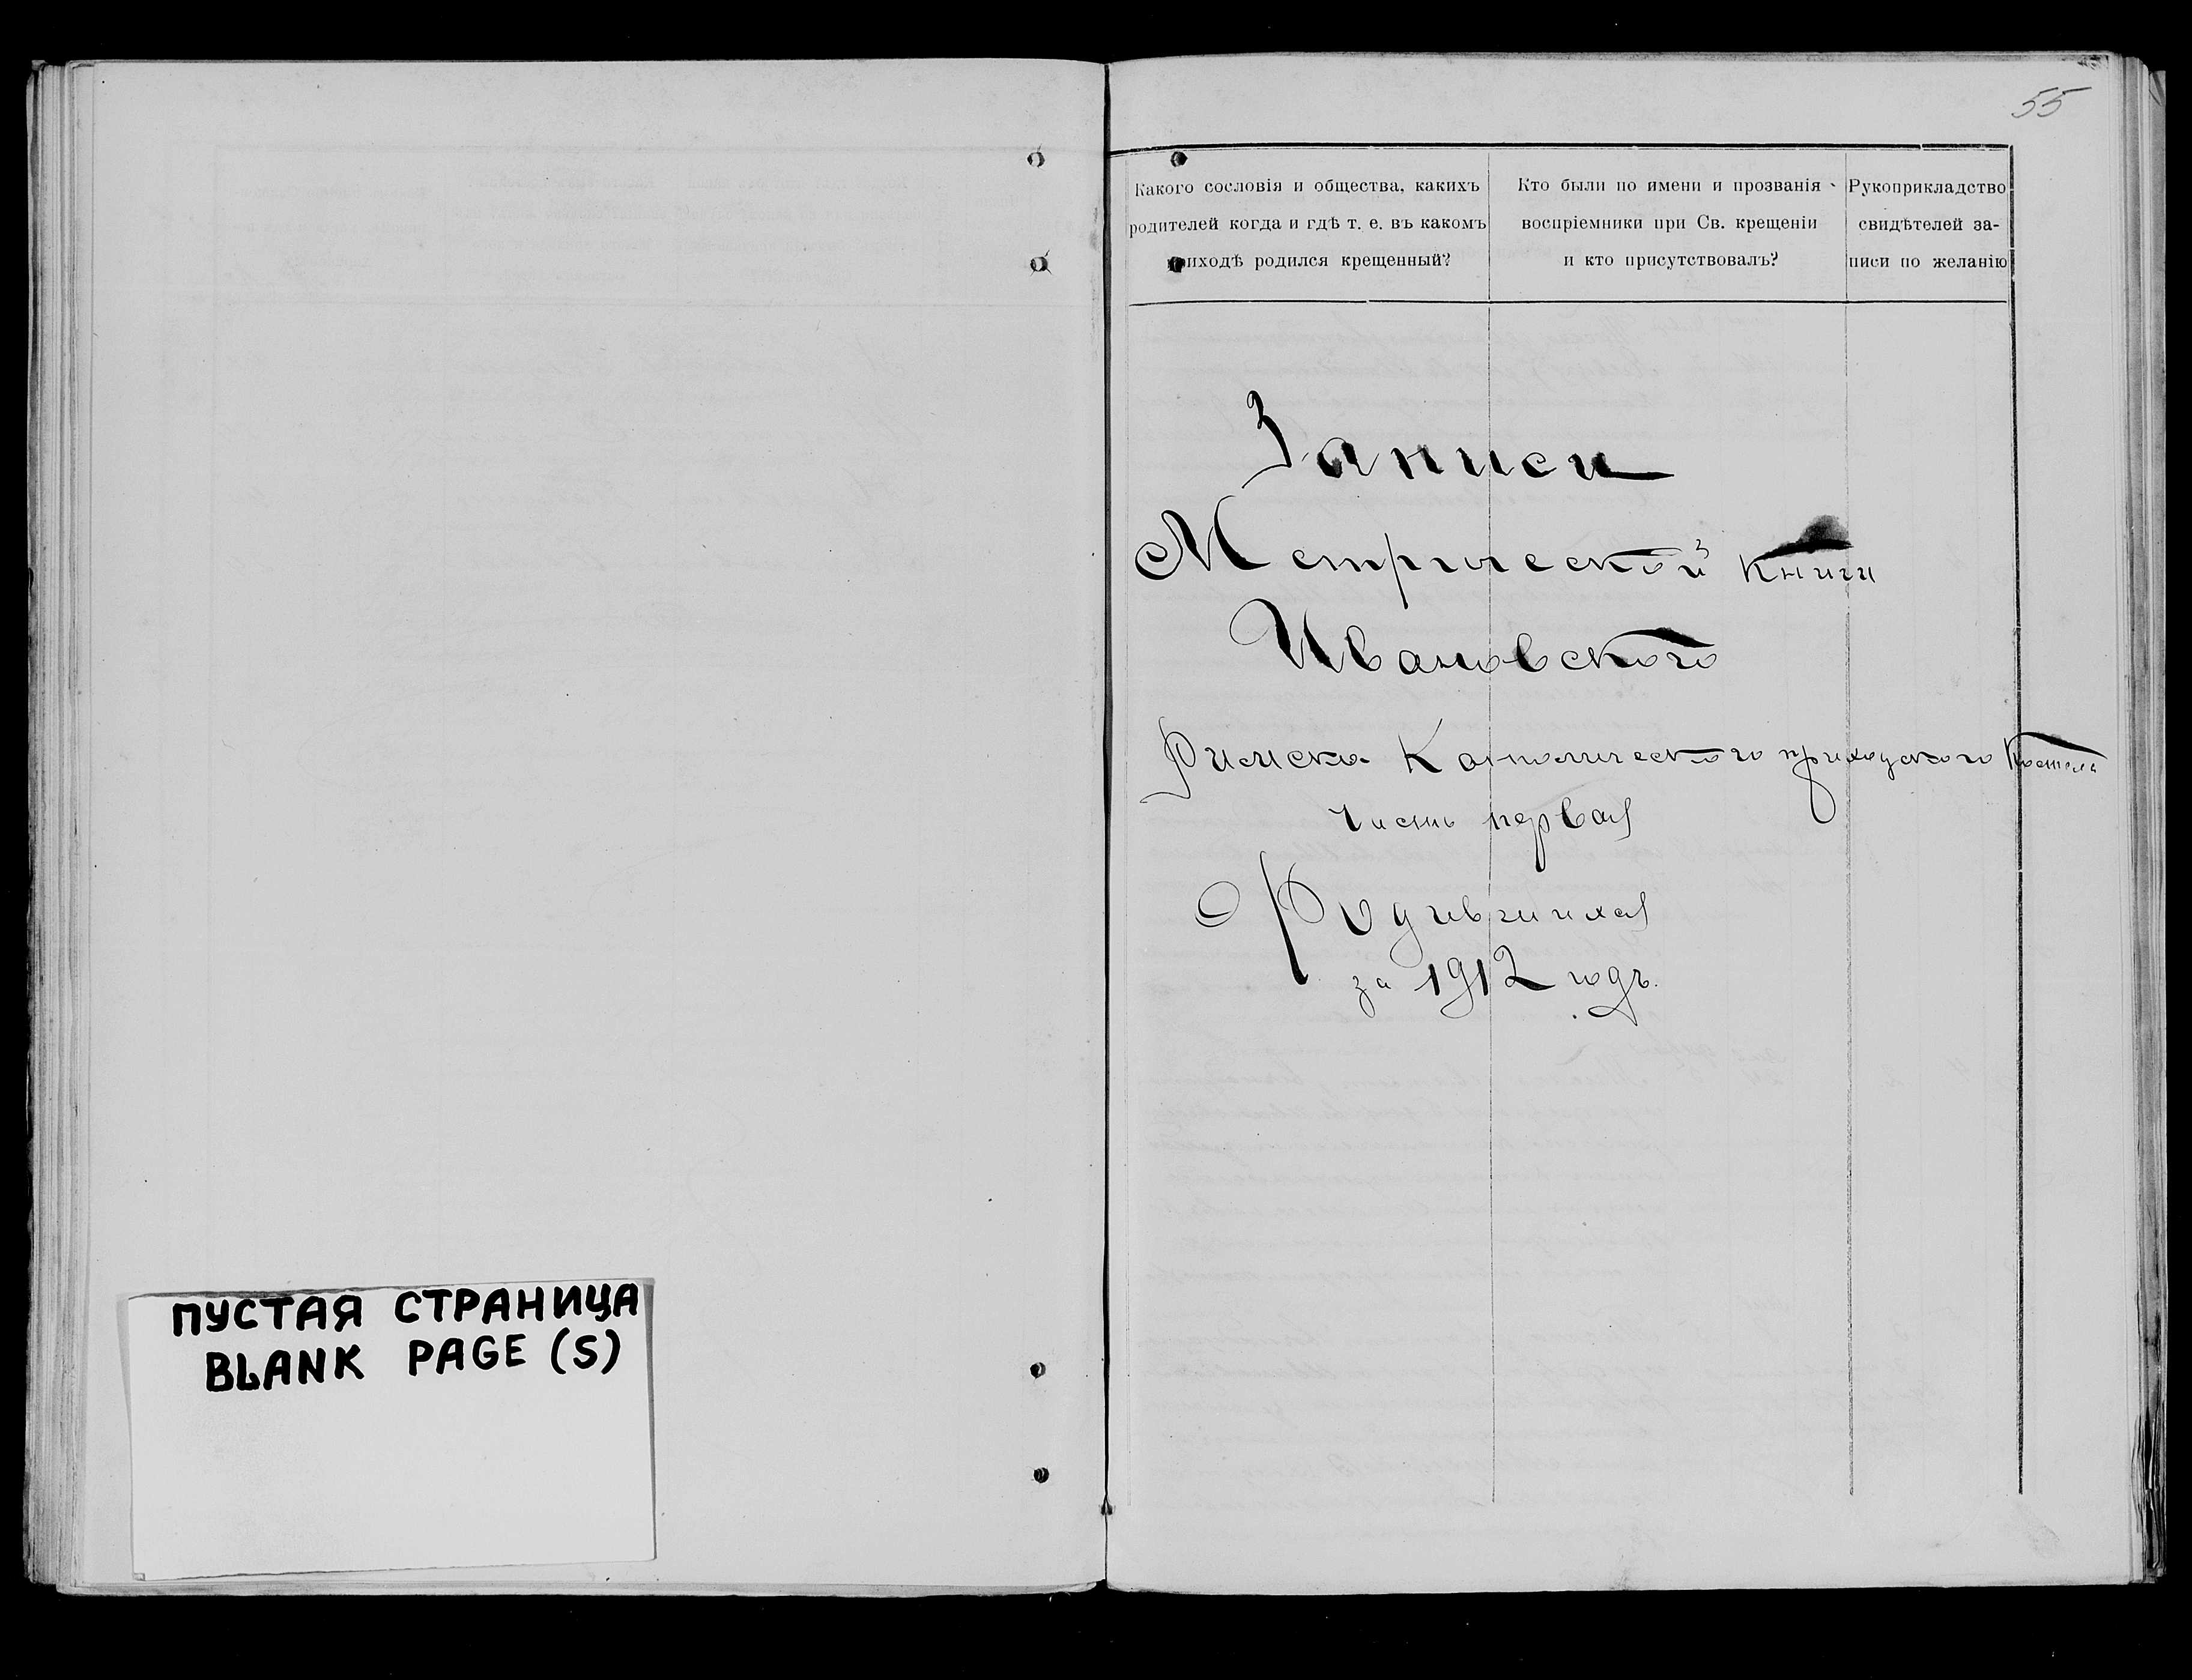 55
Какого сословія и общества, какихъ
родителей когда и гдѣ т. е. въ какомъ
приходѣ родился крещенный?
Кто были по имени и прозванія
воспріемники при Св. крещеніи
и кто присутствовалъ?
Рукоприкладство
свидѣтелей за-
писи по желанію
Записи
Метрической Книги
Ивановского
Римско Католического приходского Костела
Часть первая
О Родившихся
за 1912 годъ.
ПУСТАЯ СТРАНИЦА
BLANK PAGE (S)